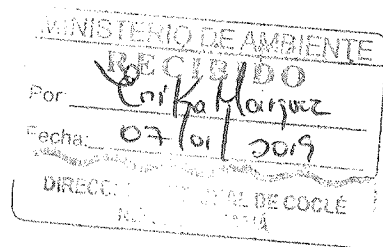 MINISTERIO DE AMBIENTE
RECIBIDO
Por: Erika Marquez
Fecha: 07/01/2019
DE COCLÉ